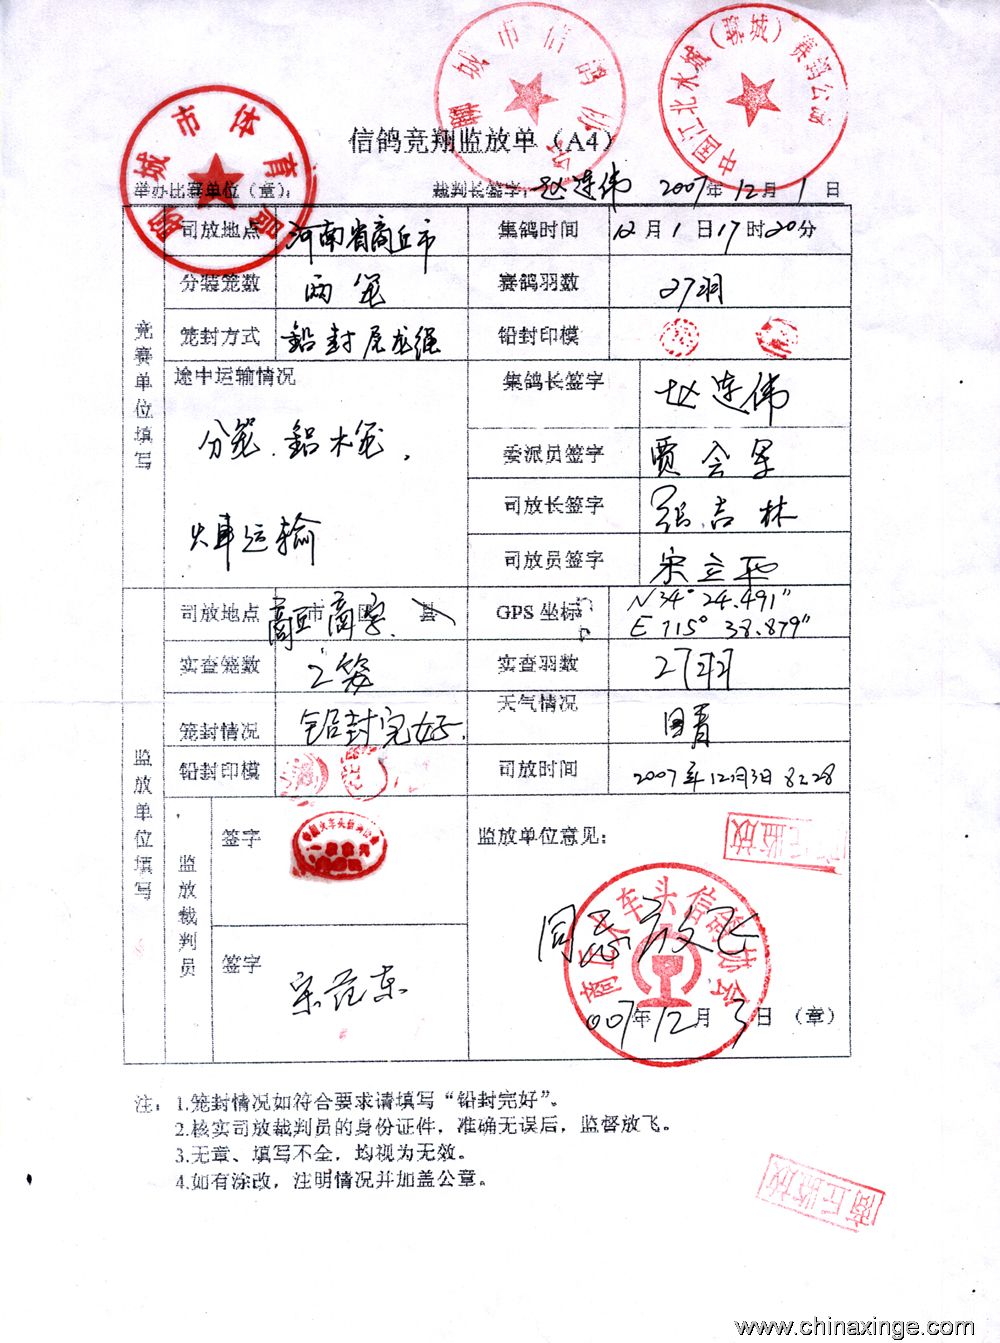 信鸽竞翔监放单（A4）
举办比赛单位（章）： 裁判长签字：赵连伟 2007年12月1日
竞赛单位填写
司放地点 河南省商丘市 集鸽时间 12月1日17时20分
分装笼数 两笼 赛鸽羽数 27羽
笼封方式 鉛封尼龙绳 铅封印模
途中运输情况 集鸽长签字 赵连伟
分笼.鋁木笼,
委派员签字 贾会军
司放长签字 张吉林
火車运输
司放员签字 宋立平
监放单位填写
司放地点 商丘市商 区 县 GPS 坐标 N34° 24.491"
E 115° 38.879"
实查笼数 2笼 实查羽数 27羽
笼封情况 铅封完好. 天气情况 晴
铅封印模 司放时间 2007年12月3日 8:28
监放裁判员
签字 监放单位意见：
同意放飞
签字
007年12月3日（章）
注：1.笼封情况如符合要求请填写“铅封完好”。
2.核实司放裁判员的身份证件，准确无误后，监督放飞。
3.无章、填写不全，均视为无效。
4.如有涂改，注明情况并加盖公章。
聊城市体育局
聊城市信鸽协会
中国江北水城（聊城）赛鸽公司
商丘火车头信鸽协会
商丘监放
商丘监放
www.chinaxinge.com